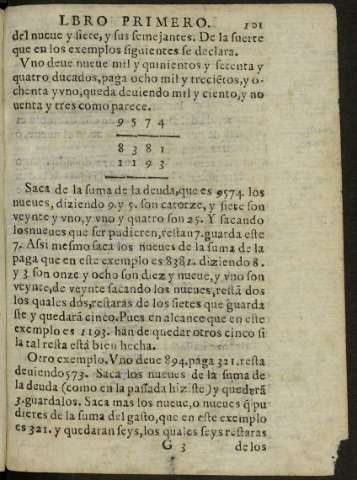 LBRO PRIMERO. 101
del nueue y siete, y sus semejantes. De la suerte
que en los exemplos siguientes se declara.
Vno deue nueue mil y quinientos y setenta y
quatro ducados, paga ocho mil y treciẽtos, y o-
chenta y vno, queda deuiendo mil y ciento, y no
uenta y tres como parece.
9574
8381
1193
Saca de la suma de la deuda, que es 9574. los
nueues, diziendo 9. y 5. son catorze, y siete son
veynte y vno, y vno y quatro son 25. Y sacando
los nueues que ser pudieren, restan 7. guarda este
7. Assi mesmo saca los nueues de la suma de la
paga que en este exemplo es 8381. diziendo 8.
y 3 son onze y ocho son diez y nueue, y vno son
veynte, de veynte sacando los nueues, restã dos
los quales dos, restaras de los sietes que guarda
ste y quedarã cinco. Pues en alcance que en este
exemplo es 1193. han de quedar otros cinco si
la tal resta está bien hecha.
Otro exemplo. Vno deue 894. paga 321. resta
deuiendo 573. Saca los nueues de la suma de
la deuda (como en la passada hiziste) y quederã
3. guardalos. Saca mas los nueue, o nueues q̃ pu
dieres de la suma del gasto, que en este exemplo
es 321. y quedaran seys, los quales seys restaras
G 3 de los